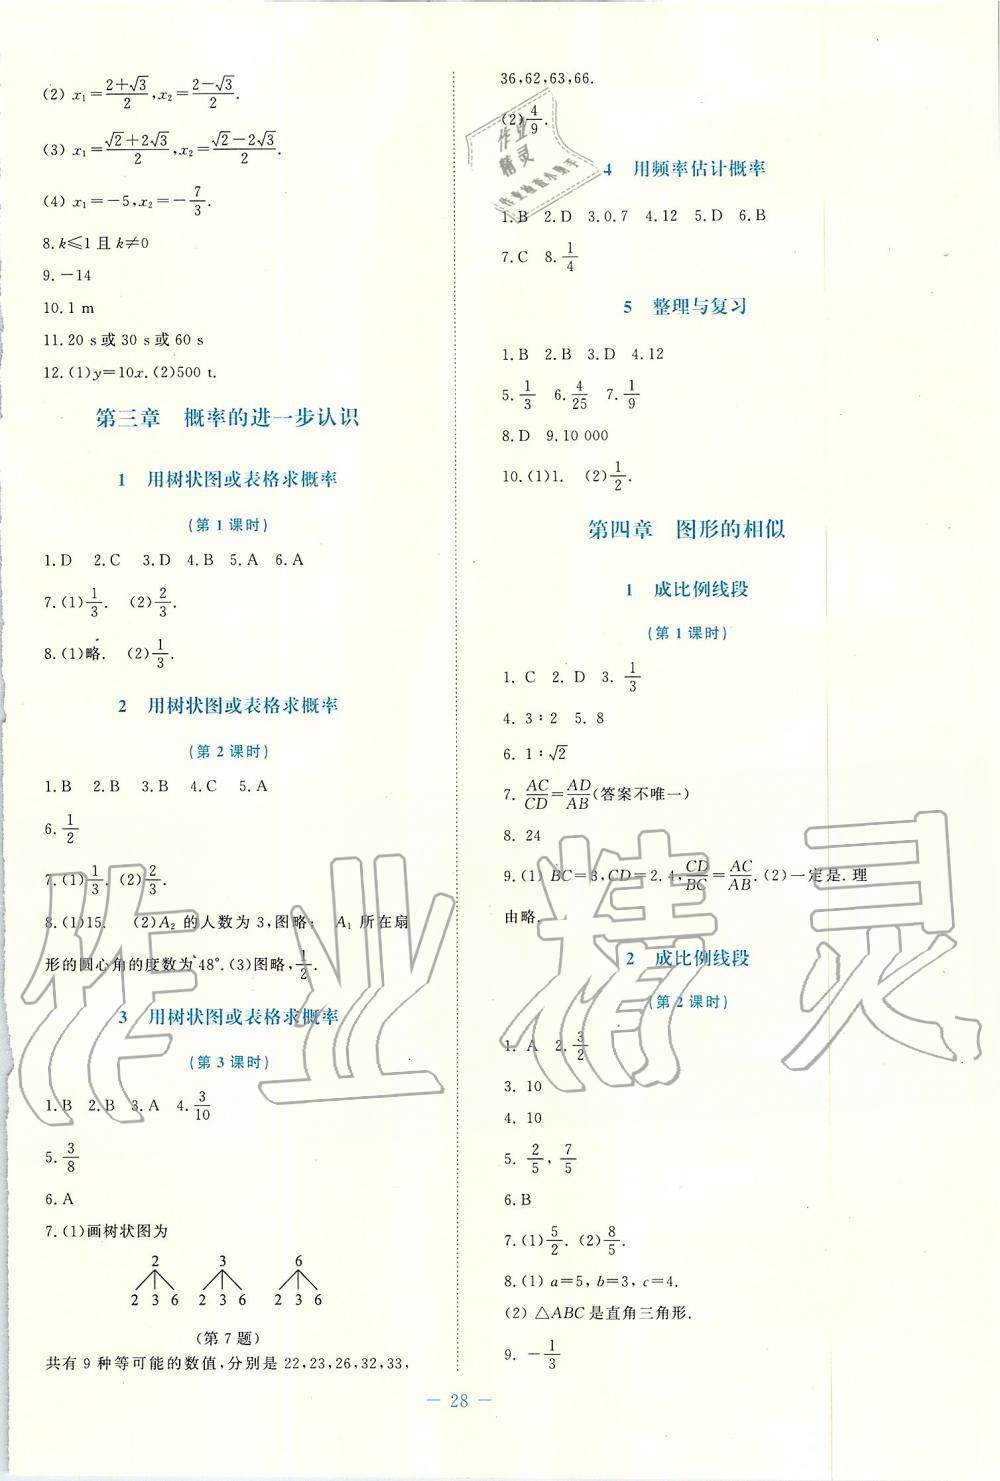 (2) x₁=(2+√3)/2,x₂=(2-√3)/2.
(3) x₁=(√2+2√3)/2,x₂=(√2-2√3)/2.
(4) x₁=-5,x₂=-7/3.
8.k≤1且k≠0
9.-14
10.1 m
11.20 s或30 s或60 s
12.(1)y=10x.(2)500 t.
第三章 概率的进一步认识
1 用树状图或表格求概率
(第1课时)
1.D 2.C 3.D 4.B 5.A 6.A
7.(1)1/3. (2)2/3.
8.(1)略. (2)1/3.
2 用树状图或表格求概率
(第2课时)
1.B 2.B 3.B 4.C 5.A
6.1/2
7.(1)1/3.(2)2/3.
8.(1)15. (2)A₂的人数为3,图略; A₁所在扇
形的圆心角的度数为48°.(3)图略,1/2.
3 用树状图或表格求概率
(第3课时)
1.B 2.B 3.A 4.3/10
5.3/8
6.A
7.(1)画树状图为
2 3 6
2 3 6 2 3 6 2 3 6
(第7题)
共有9种等可能的数值,分别是22,23,26,32,33,
36,62,63,66.
(2)4/9.
4 用频率估计概率
1.B 2.D 3.0.7 4.12 5.D 6.B
7.C 8.1/4
5 整理与复习
1.B 2.B 3.D 4.12
5.1/3 6.4/25 7.1/9
8.D 9.10 000
10.(1)1. (2)1/2.
第四章 图形的相似
1 成比例线段
(第1课时)
1. C 2. D 3. 1/3
4. 3∶2 5. 8
6. 1∶√2
7. AC/CD=AD/AB(答案不唯一)
8. 24
9.(1) BC=3,CD=2.4,CD/BC=AC/AB.(2)一定是.理
由略.
2 成比例线段
(第2课时)
1. A 2.3/2
3. 10
4. 10
5. 2/5, 7/5
6.B
7.(1)5/2.(2)8/5.
8.(1) a=5, b=3, c=4.
(2) △ABC是直角三角形.
9. -1/3
— 28 —
作业
精灵
作业检查小助手
作业精灵